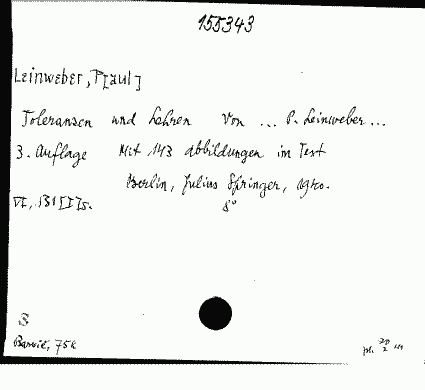 155343
Leinweber, P[aul]
Toleranzen und Lehren Von ... P. Leinweber ...
3. Auflage Mit 143 Abbildungen im Text
Berlin, Julius Springer, 1940.
VI, 131 [I] s. 8°
75k